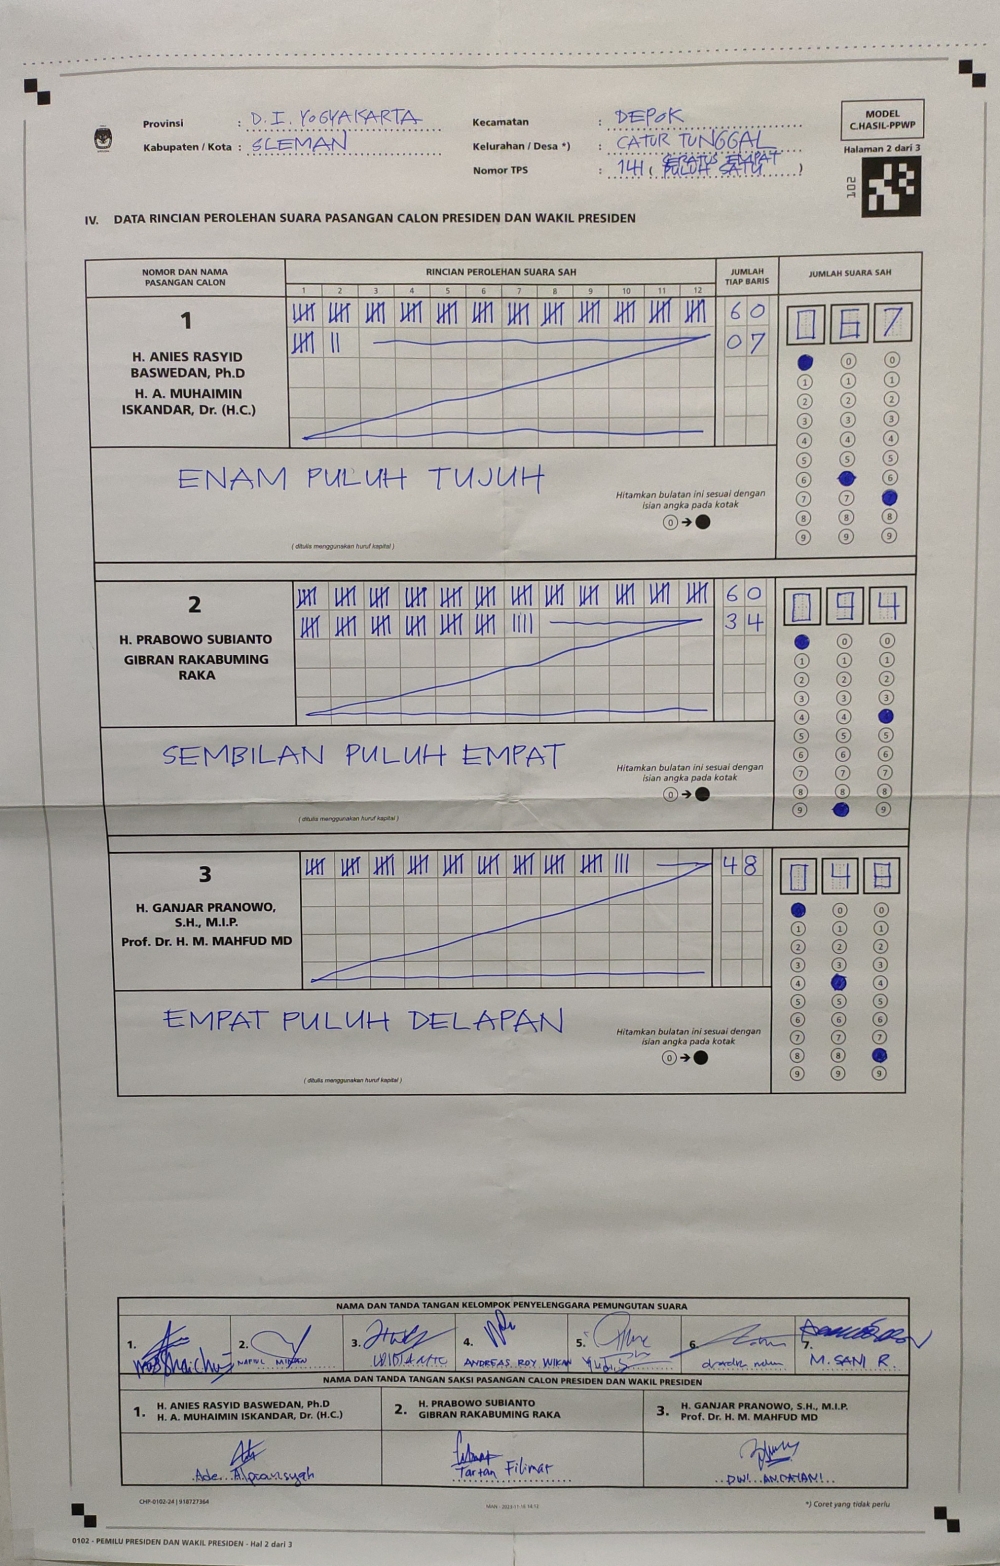 Provinsi : D.I. YOGYAKARTA
Kabupaten / Kota : SLEMAN
Kecamatan : DEPOK
Kelurahan / Desa *) : CATUR TUNGGAL
Nomor TPS : 141 ( SERATUS EMPAT PULUH SATU )
MODEL
C.HASIL-PPWP
Halaman 2 dari 3
201
IV. DATA RINCIAN PEROLEHAN SUARA PASANGAN CALON PRESIDEN DAN WAKIL PRESIDEN
NOMOR DAN NAMA
PASANGAN CALON
RINCIAN PEROLEHAN SUARA SAH
1 2 3 4 5 6 7 8 9 10 11 12
JUMLAH
TIAP BARIS
JUMLAH SUARA SAH
1
H. ANIES RASYID
BASWEDAN, Ph.D
H. A. MUHAIMIN
ISKANDAR, Dr. (H.C.)
60
07
067
ENAM PULUH TUJUH
( ditulis menggunakan huruf kapital )
Hitamkan bulatan ini sesuai dengan
isian angka pada kotak
0 → ●
2
H. PRABOWO SUBIANTO
GIBRAN RAKABUMING
RAKA
60
34
094
SEMBILAN PULUH EMPAT
( ditulis menggunakan huruf kapital )
Hitamkan bulatan ini sesuai dengan
isian angka pada kotak
0 → ●
3
H. GANJAR PRANOWO,
S.H., M.I.P.
Prof. Dr. H. M. MAHFUD MD
48
048
EMPAT PULUH DELAPAN
( ditulis menggunakan huruf kapital )
Hitamkan bulatan ini sesuai dengan
isian angka pada kotak
0 → ●
NAMA DAN TANDA TANGAN KELOMPOK PENYELENGGARA PEMUNGUTAN SUARA
1.
2.
3.
4. ANDREAS ROY WIKAN
5. Yudi.S
6.
7. M. SANI R.
NAMA DAN TANDA TANGAN SAKSI PASANGAN CALON PRESIDEN DAN WAKIL PRESIDEN
1. H. ANIES RASYID BASWEDAN, Ph.D
H. A. MUHAIMIN ISKANDAR, Dr. (H.C.)
2. H. PRABOWO SUBIANTO
GIBRAN RAKABUMING RAKA
3. H. GANJAR PRANOWO, S.H., M.I.P.
Prof. Dr. H. M. MAHFUD MD
Ade
Tartan Filimar
DWI ANDAYANI
CHP-0102-24 | 918727364
*) Coret yang tidak perlu
0102 - PEMILU PRESIDEN DAN WAKIL PRESIDEN - Hal 2 dari 3